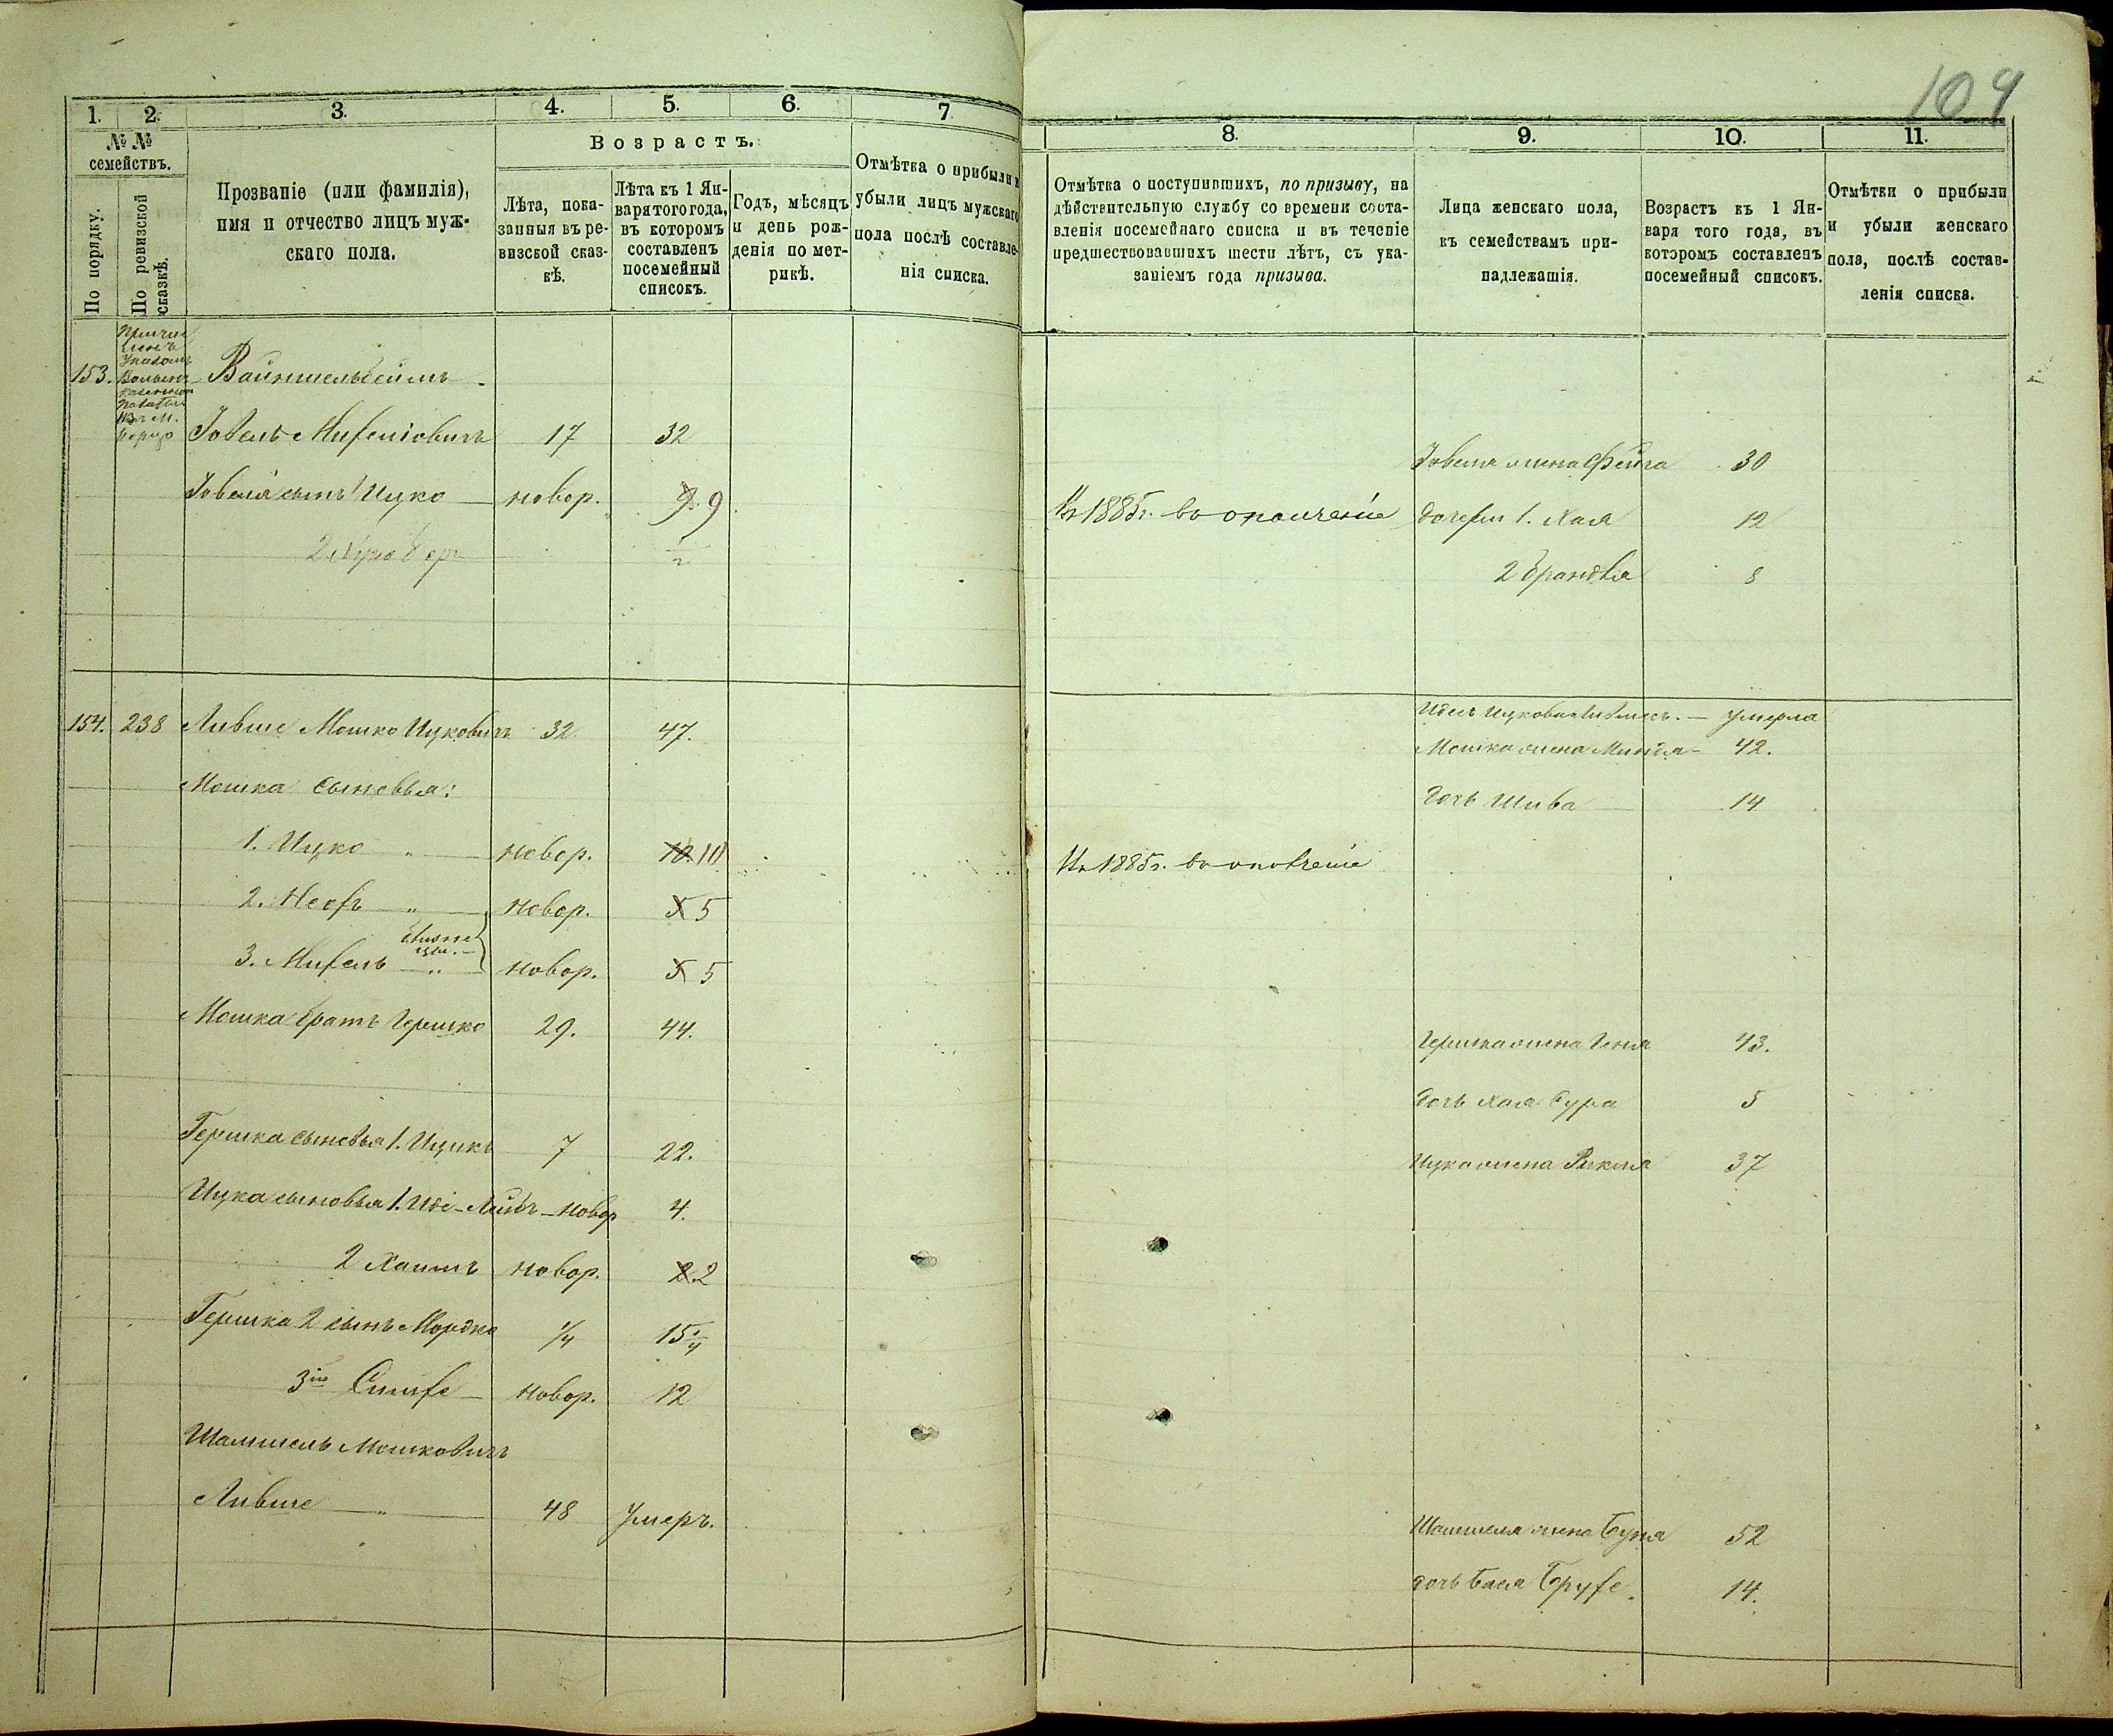 104
1. 2. 3. 4. 5. 6. 7.
№ № семействъ.
По порядку.
По ревизской сказкѣ.
Прозваніе (или фамилія),
имя и отчество лицъ муж-
скаго пола.
Возрастъ.
Лѣта, пока-
занныя въ ре-
визской сказ-
кѣ.
Лѣта къ 1 Ян-
варя того года,
въ которомъ
составленъ
посемейный
списокъ.
Годъ, мѣсяцъ
и день рож-
денія по мет-
рикѣ.
Отмѣтка о прибыли и
убыли лицъ мужскаго
пола послѣ составле-
нія списка.
8. 9. 10. 11.
Отмѣтка о поступившихъ, по призыву, на
дѣйствительную службу со времени соста-
вленія посемейнаго списка и въ теченіе
предшествовавшихъ шести лѣтъ, съ ука-
заніемъ года призыва.
Лица женскаго пола,
къ семействамъ при-
надлежашія.
Возрастъ къ 1 Ян-
варя того года, въ
которомъ составленъ
посемейный списокъ.
Отмѣтки о прибыли
и убыли женскаго
пола, послѣ состав-
ленія списка.
153. Вайншельбеймъ
Іовель Михеліовичъ 17 32
Іовеля жена Фейга 30
Іовеля сынъ 1 Ицко новор. 9. 9
Въ 1885 г. въ ополченіе
дочери 1. Хая 12
2
2 Брандля 8
154. 238 Лившe Мошко Ицковичъ 32 47.
умерла
Мошка жена Миндля 42.
Мошка сыновья:
дочь Шива 14
1. Ицко " новор. 10. 10
Въ 1885 г. въ ополченіе
2. Неофъ " новор. 5 5
близне
цы.
3. Михель " новор. 5 5
Мошка братъ Гершко 29. 44.
Гершка жена Геня 43.
дочь Хая Сура 5
Гершка сыновья 1. Ицикъ 7 22.
Ицка жена Рикля 37
Ицка сыновья 1. Лейбъ новор 4.
2 Хаимъ новор. 2. 2
Гершка 2 сынъ Мордко 1/4 15 1/4
3й Симхе новор. 12
Шамшель Мошковичъ
Лившe " 48 умеръ.
Шамшеля жена Буня 52
дочь Бася Брухе. 14.